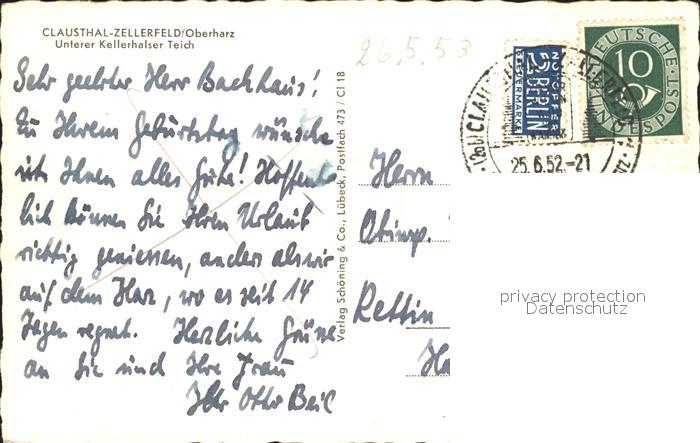 CLAUSTHAL-ZELLERFELD/Oberharz
Unterer Kellerhalser Teich
26.5.53
Sehr geehrter Herr Backhaus!
Zu Ihrem Geburtstag wünsche
ich Ihnen alles Gute! Hoffent-
lich können Sie Ihren Urlaub
richtig geniessen, anders als wir
auf dem Harz, wo es seit 14
Tagen regnet. Herzliche Grüsse
an Sie und Ihre Frau
Ihr Otto Beil
Verlag Schöning & Co., Lübeck, Postfach 473 / Cl 18
NOTOPFER
2 BERLIN
STEUERMARKE
DEUTSCHE
10
BUNDESPOST
25.6.52.-21
Herrn
Obinsp.
Rettin
privacy protection
Datenschutz